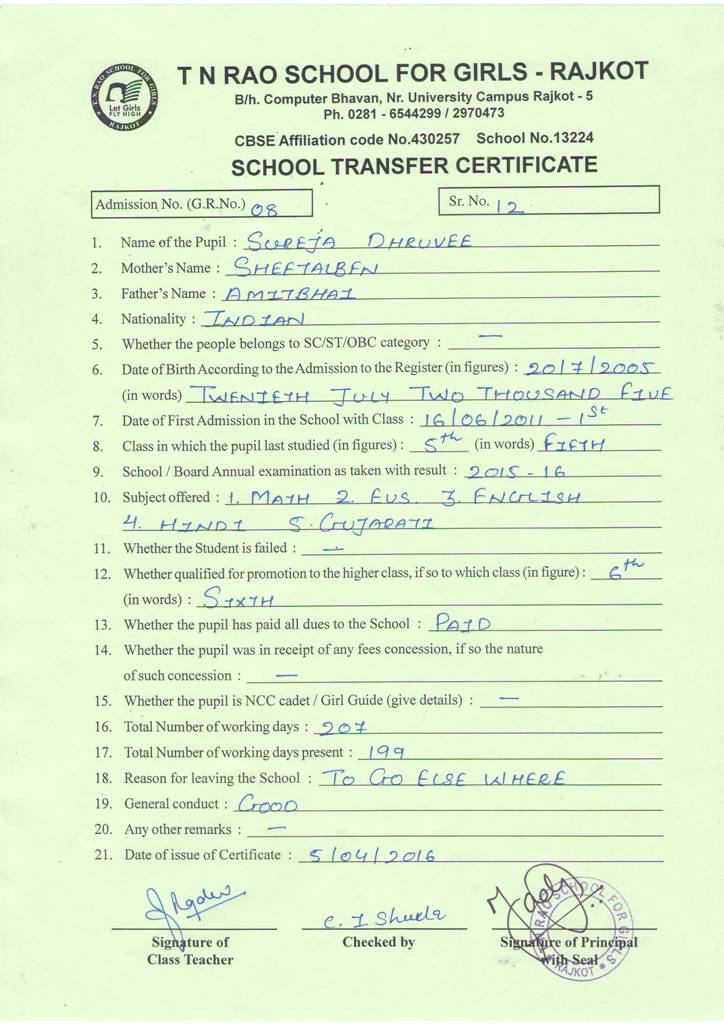 T. N. RAO SCHOOL FOR GIRLS
Let Girls
FLY HIGH
RAJKOT
T N RAO SCHOOL FOR GIRLS - RAJKOT
B/h. Computer Bhavan, Nr. University Campus Rajkot - 5
Ph. 0281 - 6544299 / 2970473
CBSE Affiliation code No.430257 School No.13224
SCHOOL TRANSFER CERTIFICATE
Admission No. (G.R.No.) 08 Sr. No. 12
1. Name of the Pupil : SUREJA DHRUVEE
2. Mother's Name : SHEETALBEN
3. Father's Name : AMITBHAI
4. Nationality : INDIAN
5. Whether the people belongs to SC/ST/OBC category : —
6. Date of Birth According to the Admission to the Register (in figures) : 20/7/2005
(in words) TWENTETH JULY TWO THOUSAND FIVE
7. Date of First Admission in the School with Class : 16/06/2011 - 1st
8. Class in which the pupil last studied (in figures) : 5th (in words) FIFTH
9. School / Board Annual examination as taken with result : 2015-16
10. Subject offered : 1. MATH 2. EVS. 3. ENGLISH
4. HINDI 5. GUJARATI
11. Whether the Student is failed : —
12. Whether qualified for promotion to the higher class, if so to which class (in figure) : 6th
(in words) : SIXTH
13. Whether the pupil has paid all dues to the School : PAID
14. Whether the pupil was in receipt of any fees concession, if so the nature
of such concession : —
15. Whether the pupil is NCC cadet / Girl Guide (give details) : —
16. Total Number of working days : 207
17. Total Number of working days present : 199
18. Reason for leaving the School : TO GO ELSE WHERE
19. General conduct : GOOD
20. Any other remarks : —
21. Date of issue of Certificate : 5/04/2016
Signature of
Class Teacher
Checked by
Signature of Principal
with Seal
RAO SCHOOL FOR GIRLS
RAJKOT